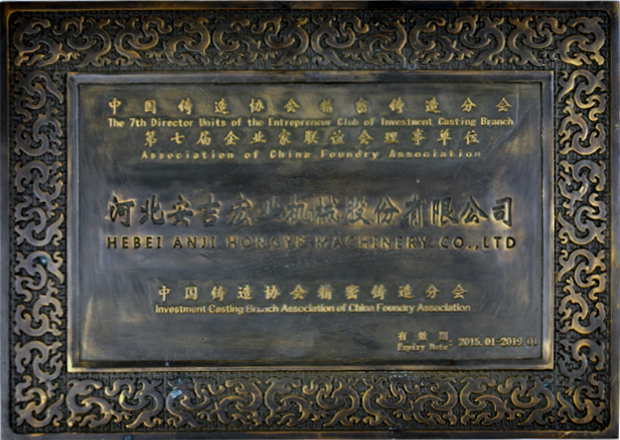 中国铸造协会精密铸造分会
The 7th Director Units of the Entrepreneur Club of Investment Casting Branch
第七届企业家联谊会理事单位
Association of China Foundry Association
河北安吉宏业机械股份有限公司
HEBEI ANJI HONGYE MACHINERY CO.,LTD
中国铸造协会精密铸造分会
Investment Casting Branch Association of China Foundry Association
有效期
Expiry Date: 2015.01-2019.01